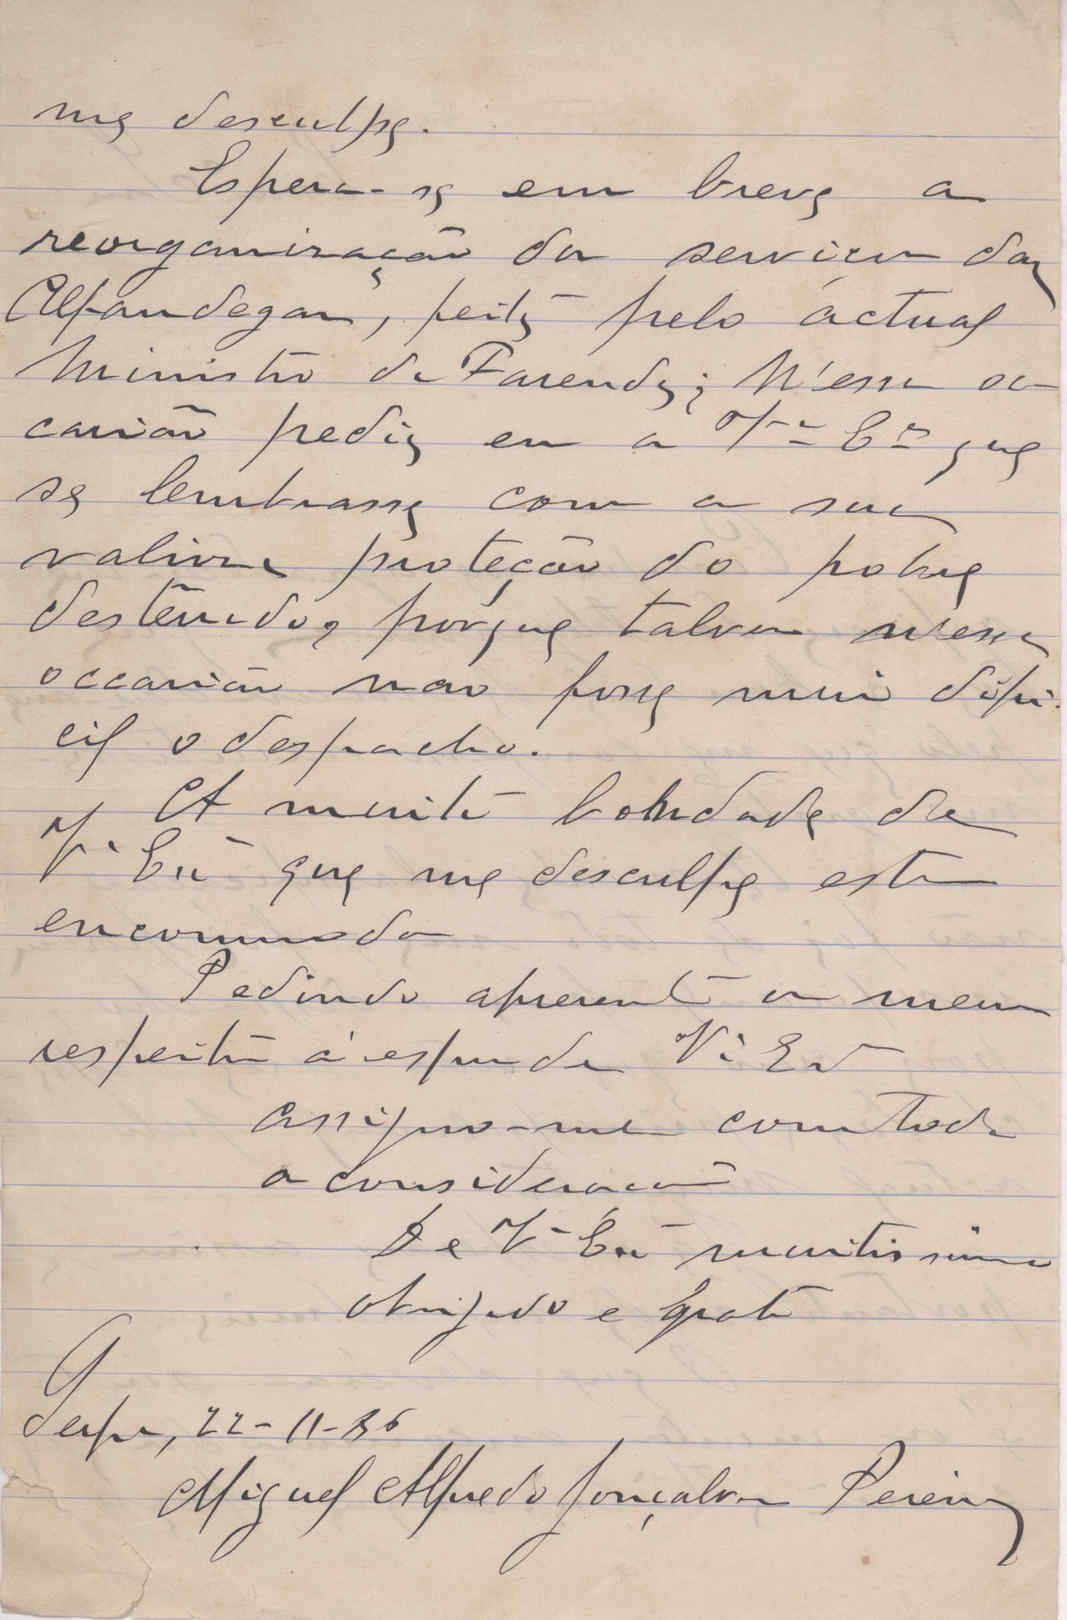 me desculpe.
Espera-se em breve a
reorganização do serviço das
Alfandegas, feita pelo actual
Ministro da Fazenda; N'essa oc
casião pedia eu a Vª Exª que
se lembrasse com a sua
valiosa proteção do pobre
desterrado, porque talvez n'essa
occasião não fosse mui diffi-
cil o despacho.
A muita bondade de
Vª Exª que me desculpe este
encommodo
Pedindo apresente os meus
respeitos á espoza de Vª Exª
assigno-me com toda
a consideração
De Vª Exª muitissimo
obrigado e grato
Serpa, 22-11-86
Miguel Alfredo Gonçalves Pereira